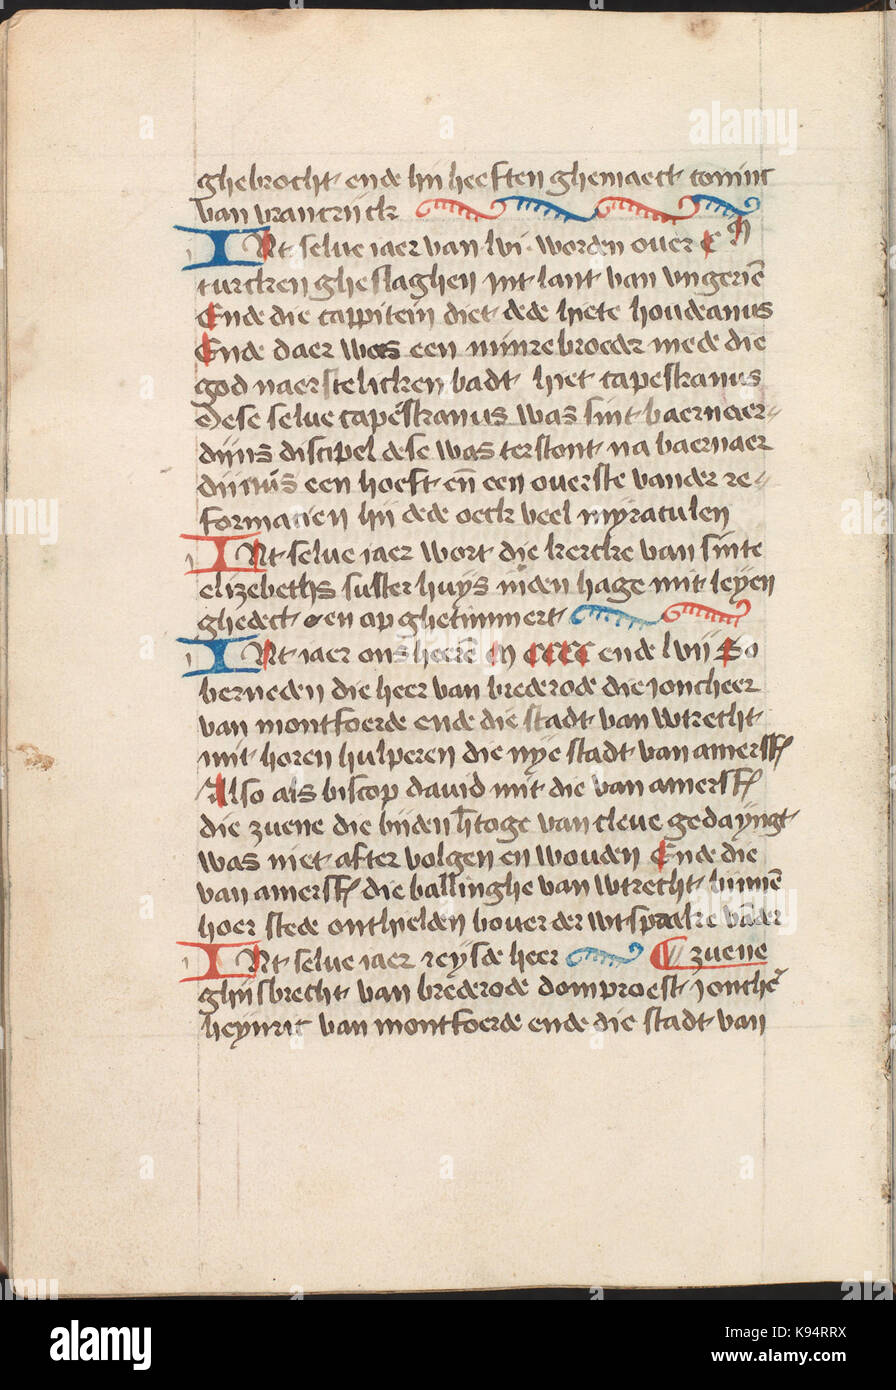 ghebrocht· ende hij heeften ghemaect· coninc
van vrancrijck
INt selve iaer van lvi· worden over C M
turcken gheslaghen int lant van ungeriē
Ende die cappitein diet dede hiete houdeanus
Ende daer was een minrebroeder mede die
god naerstelicken badt· hiet capestranus
Dese selve capestranus was sint baernaer-
dijns discipel dese was terstont na baernaer
dijnus een hoeft· eñ een overste vander re-
formacien hij dede oeck veel myraculen
INt selve iaer wort die kercke van sinte
elizebeths suster huys inden hage mit leyen
ghedect· en op ghetimmert·
INt iaer ons heerē M CCCC ende lvij So
berneden die heer van brederode die joncheer
van montfoerde ende die stadt van wtrecht·
mit horen hulperen die nye stadt van amersf
Also als biscop david mit die van amersf
die zuene die bijden htoge van cleve gedayngt·
was niet after volgen en wouden Ende die
van amersf die ballinghe van wtrecht· binnē
hoer stede onthielden bover der wtsprake vāder
INt selve iaer reysde heer zuene
ghijsbrecht· van brederode domproest· jonchē
heynric van montfoerde ende die stadt van
alamy
K94RRX
www.alamy.com